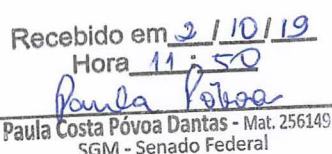 Recebido em 2 / 10 / 19
Hora 11 : 50
Paula Póvoa
Paula Costa Póvoa Dantas - Mat. 256149
SGM - Senado Federal